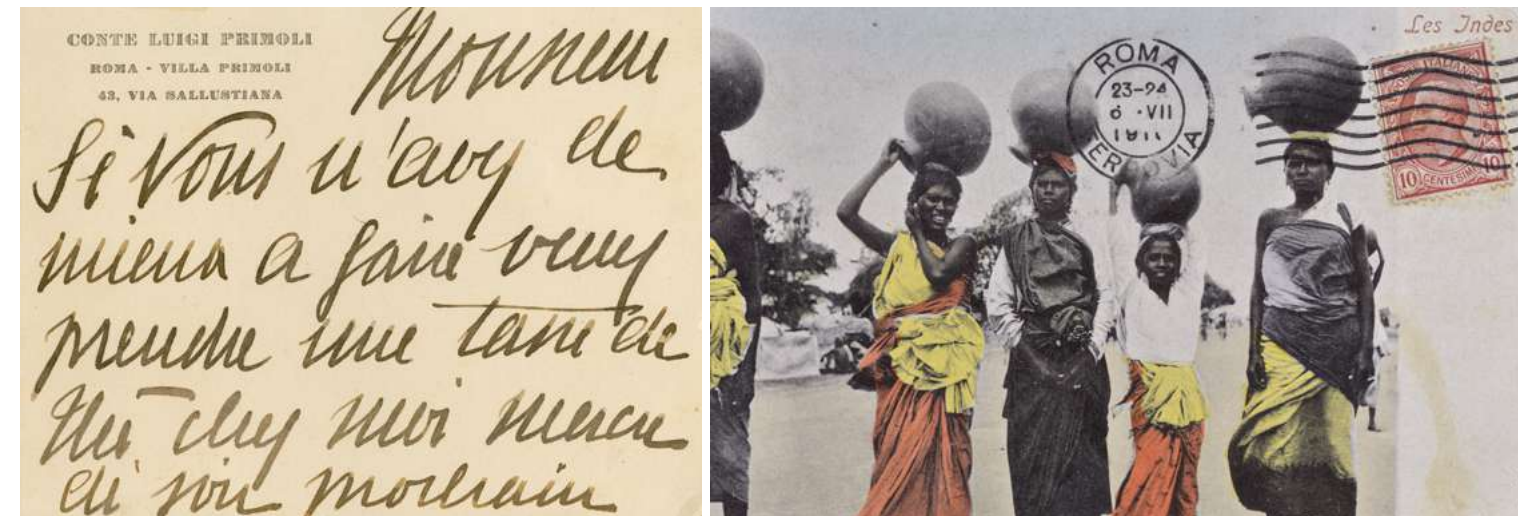 CONTE LUIGI PRIMOLI
ROMA - VILLA PRIMOLI
43, VIA SALLUSTIANA
Monsieur
Si vous n'avez de
mieux a faire venez
prendre une tasse de
thé chez moi mercre
di soir prochain
Les Indes
ROMA
23-24
6 ·VII
1911
FERROVIA
POSTE ITALIANE
10 CENTESIMI 10